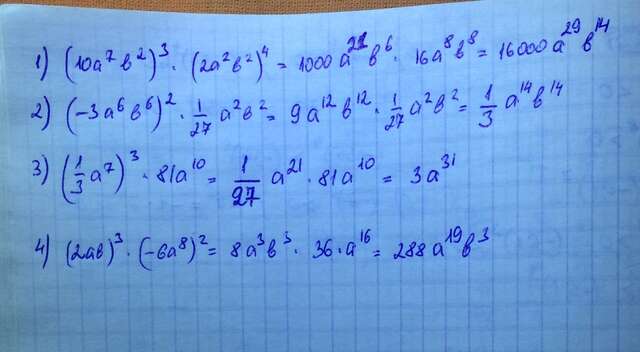 1) (10a⁷b²)³ · (2a²b²)⁴ = 1000a²¹b⁶ · 16a⁸b⁸ = 16000a²⁹b¹⁴
2) (-3a⁶b⁶)² · 1/27 a²b² = 9a¹²b¹² · 1/27 a²b² = 1/3 a¹⁴b¹⁴
3) (1/3 a⁷)³ · 81a¹⁰ = 1/27 a²¹ · 81a¹⁰ = 3a³¹
4) (2ab)³ · (-6a⁸)² = 8a³b³ · 36 · a¹⁶ = 288a¹⁹b³